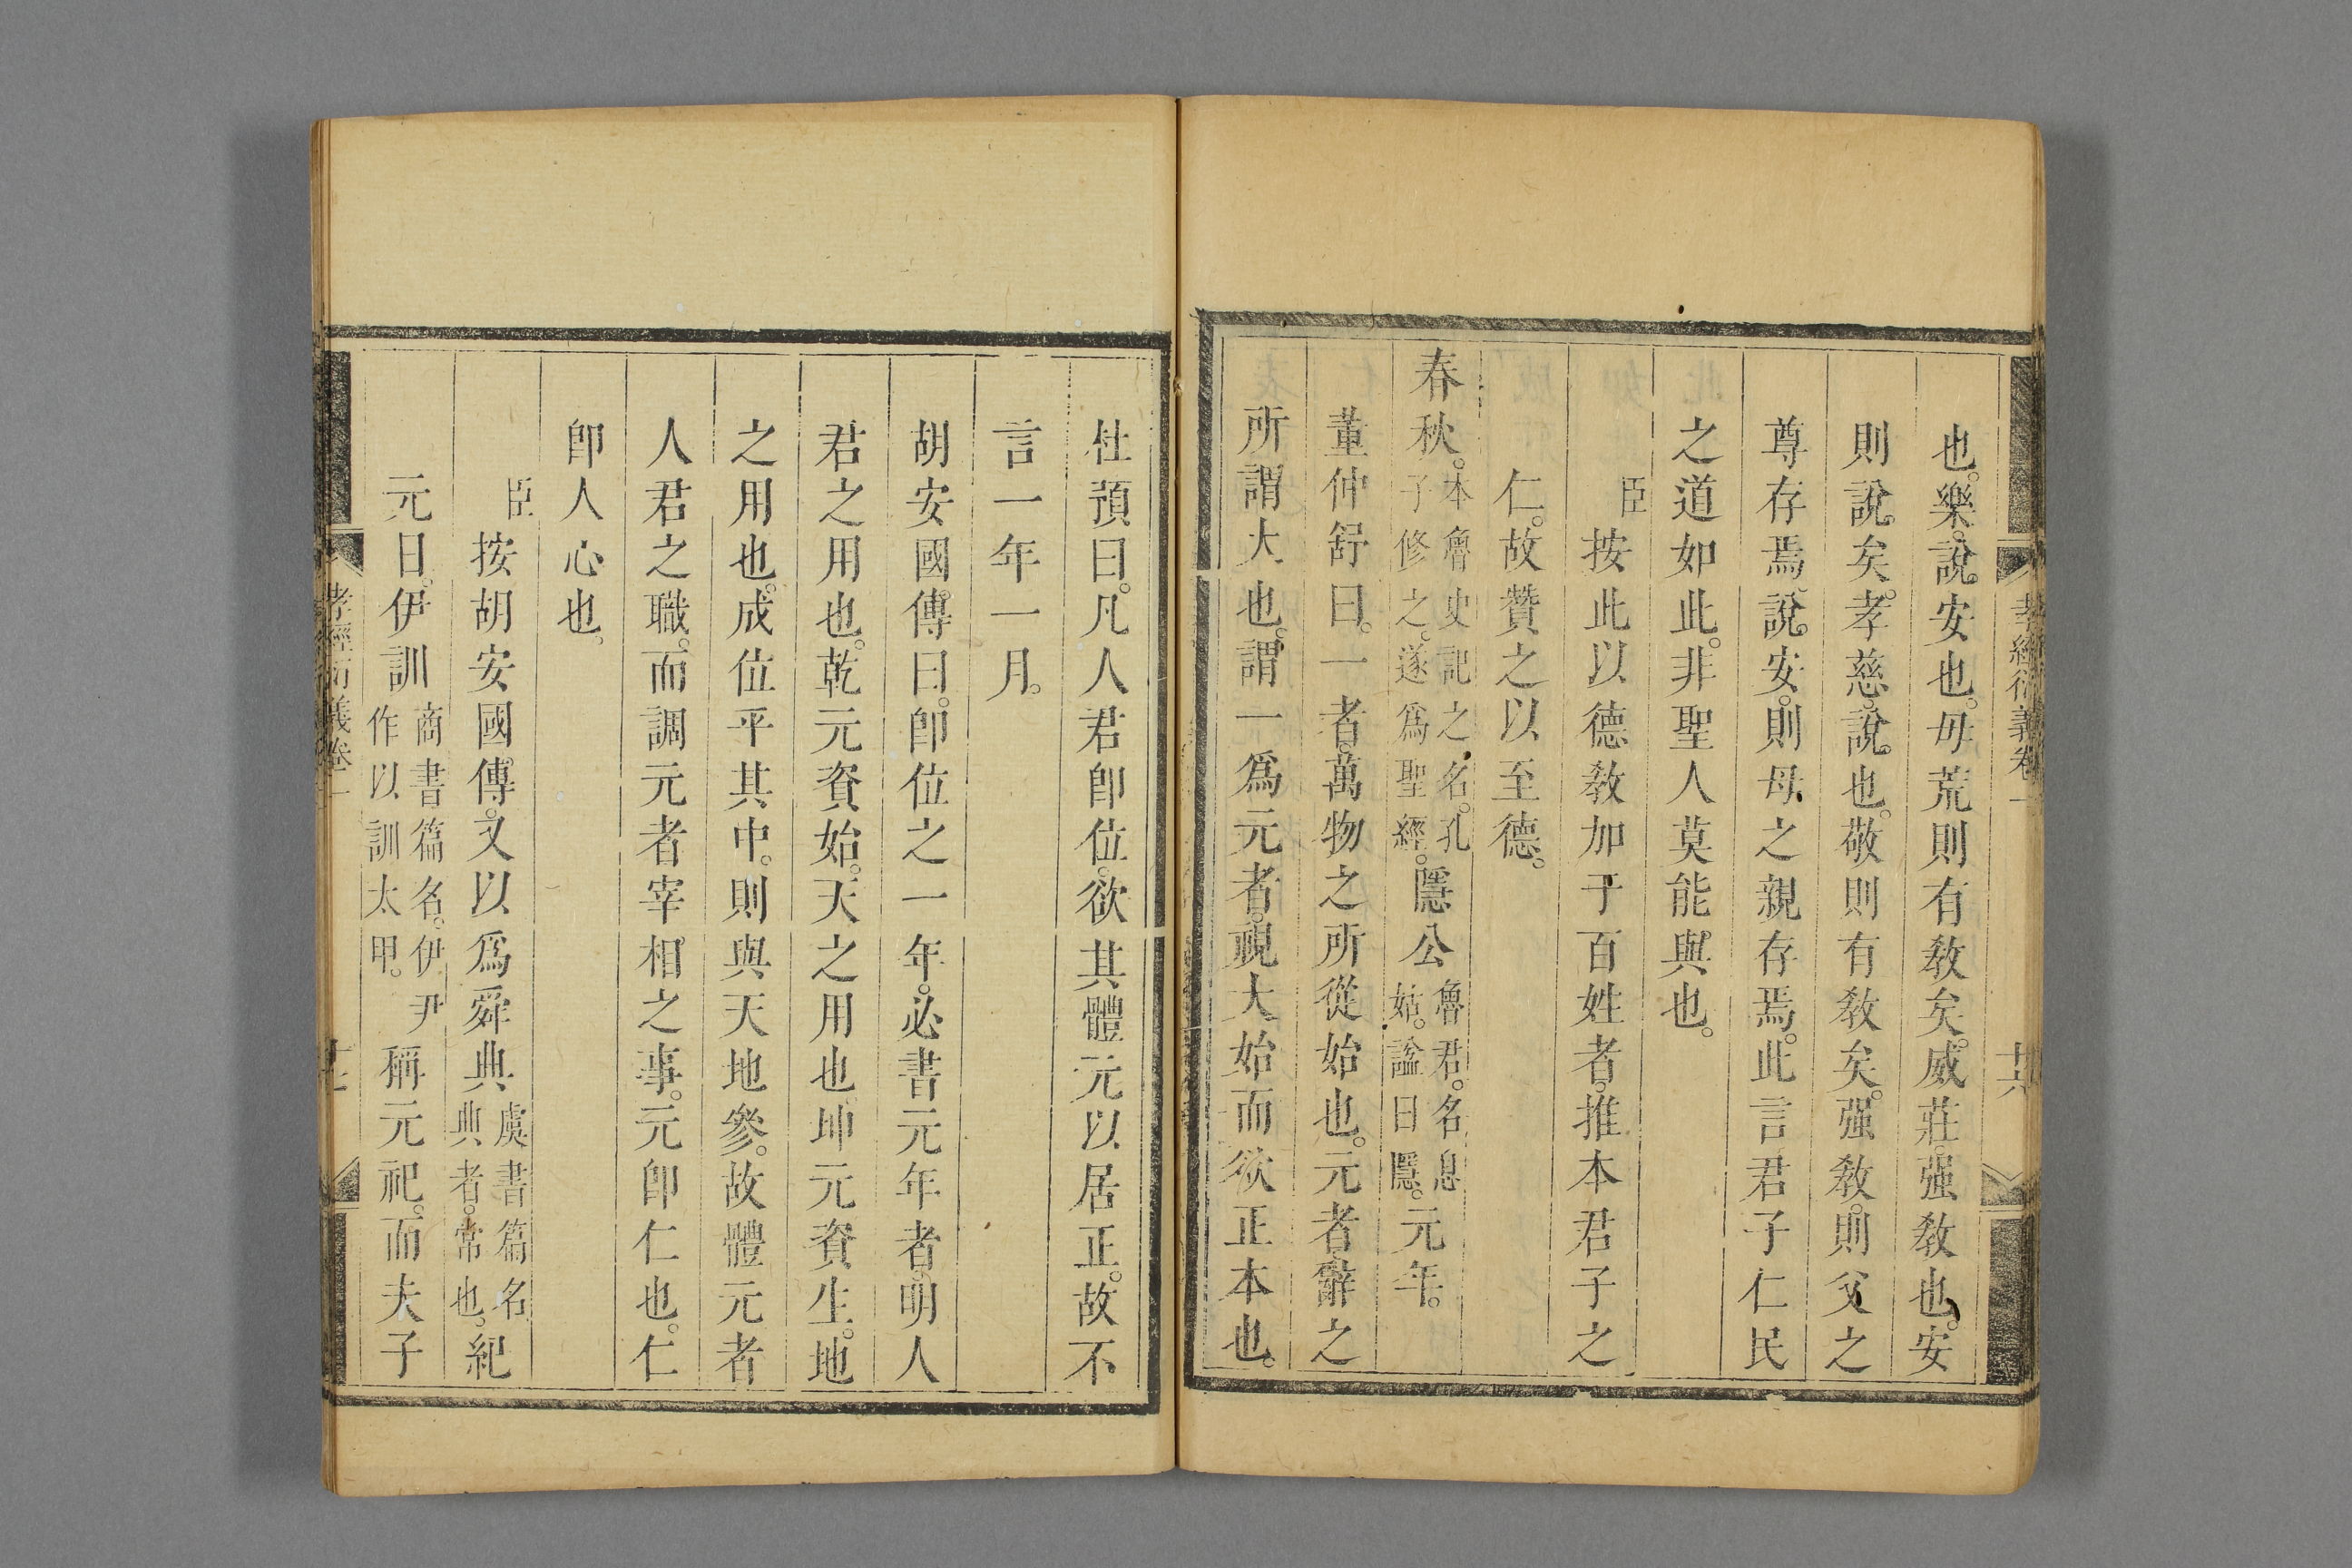 孝經衍義卷一
十六
也。樂。說。安也。毋荒則有敎矣。威莊。强敎也。安
則說。矣。孝慈。說。也。敬則有敎矣。强敎。則父之
尊存焉。說。安。則母之親存焉。此言君子仁民
之道如此。非聖人莫能與也。
臣按此以德敎加于百姓者。推本君子之
仁。故贊之以至德。
春秋。本魯史記之名。孔子修之。遂爲聖經。隱公魯君。名息姑。諡曰隱。元年。
董仲舒曰。一者。萬物之所從始也。元者。辭之
所謂大也。謂一爲元者。視大始而欲正本也。
杜預曰。凡人君卽位。欲其體元以居正。故不
言一年一月。
胡安國。傳曰。卽位之一年。必書元年者。明人
君之用也。乾元資始。天之用也。坤元資生。地
之用也。成位乎其中。則與天地參。故體元者
人君之職。而調元者宰相之事。元卽仁也。仁
卽人心也。
臣按胡安國。傳。又以爲舜典虞書篇名典者。常也。紀
元日。伊訓商書篇名。伊尹作以訓太甲。稱元祀。而夫子
孝經衍義卷一